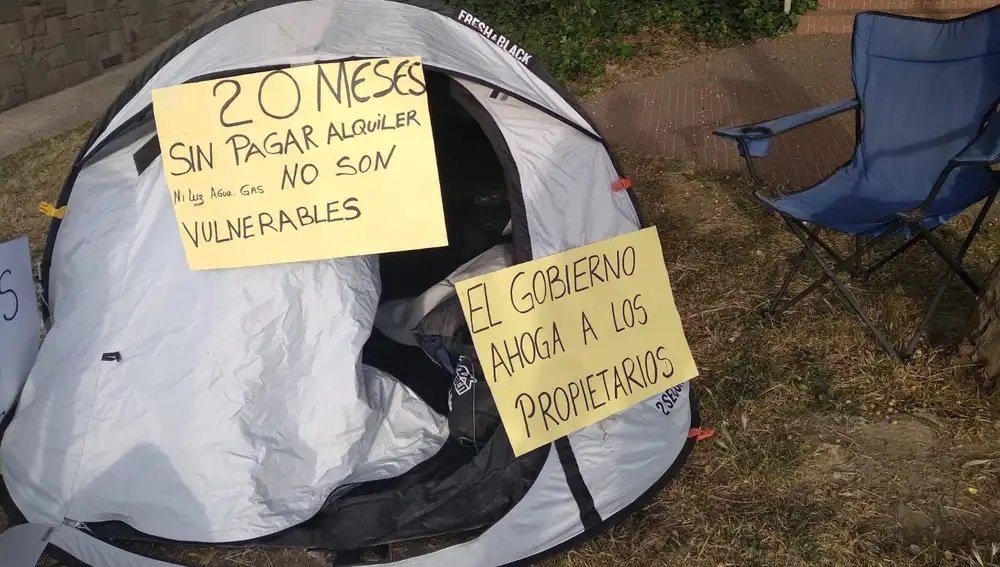 FRESH & BLACK
20 MESES
SIN PAGAR ALQUILER
Ni LUZ AGUA. GAS NO SON
VULNERABLES
EL GOBIERNO
AHOGA A LOS
PROPIETARIOS
S